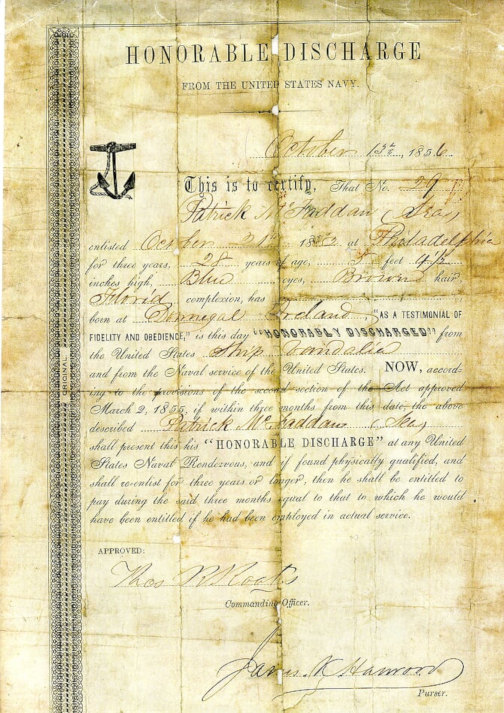 HONORABLE DISCHARGE
FROM THE UNITED STATES NAVY.
October 13th, 1856.
This is to certify, That No. 29
Patrick McFaddan (Sea)
enlisted October 21st 1852 at Philadelphia
for three years, 28 years of age, 5 feet 4½
inches high, Blue eyes, Brown hair
Florid complexion, has
born at Donnegal Ireland, "AS A TESTIMONIAL OF
FIDELITY AND OBEDIENCE," is this day "HONORABLY DISCHARGED" from
the United States Ship Vandalia
and from the Naval service of the United States. NOW, accord-
ing to the provisions of the second section of the Act approved
March 2, 1855, if within three months from this date, the above
described Patrick McFaddan (Sea)
shall present this his "HONORABLE DISCHARGE" at any United
States Naval Rendezvous, and if found physically qualified, and
shall re-enlist for three years or longer, then he shall be entitled to
pay during the said three months equal to that to which he would
have been entitled if he had been employed in actual service.
APPROVED:
Thos R Rootes
Commanding Officer.
Harwood
Purser.
ORIGINAL